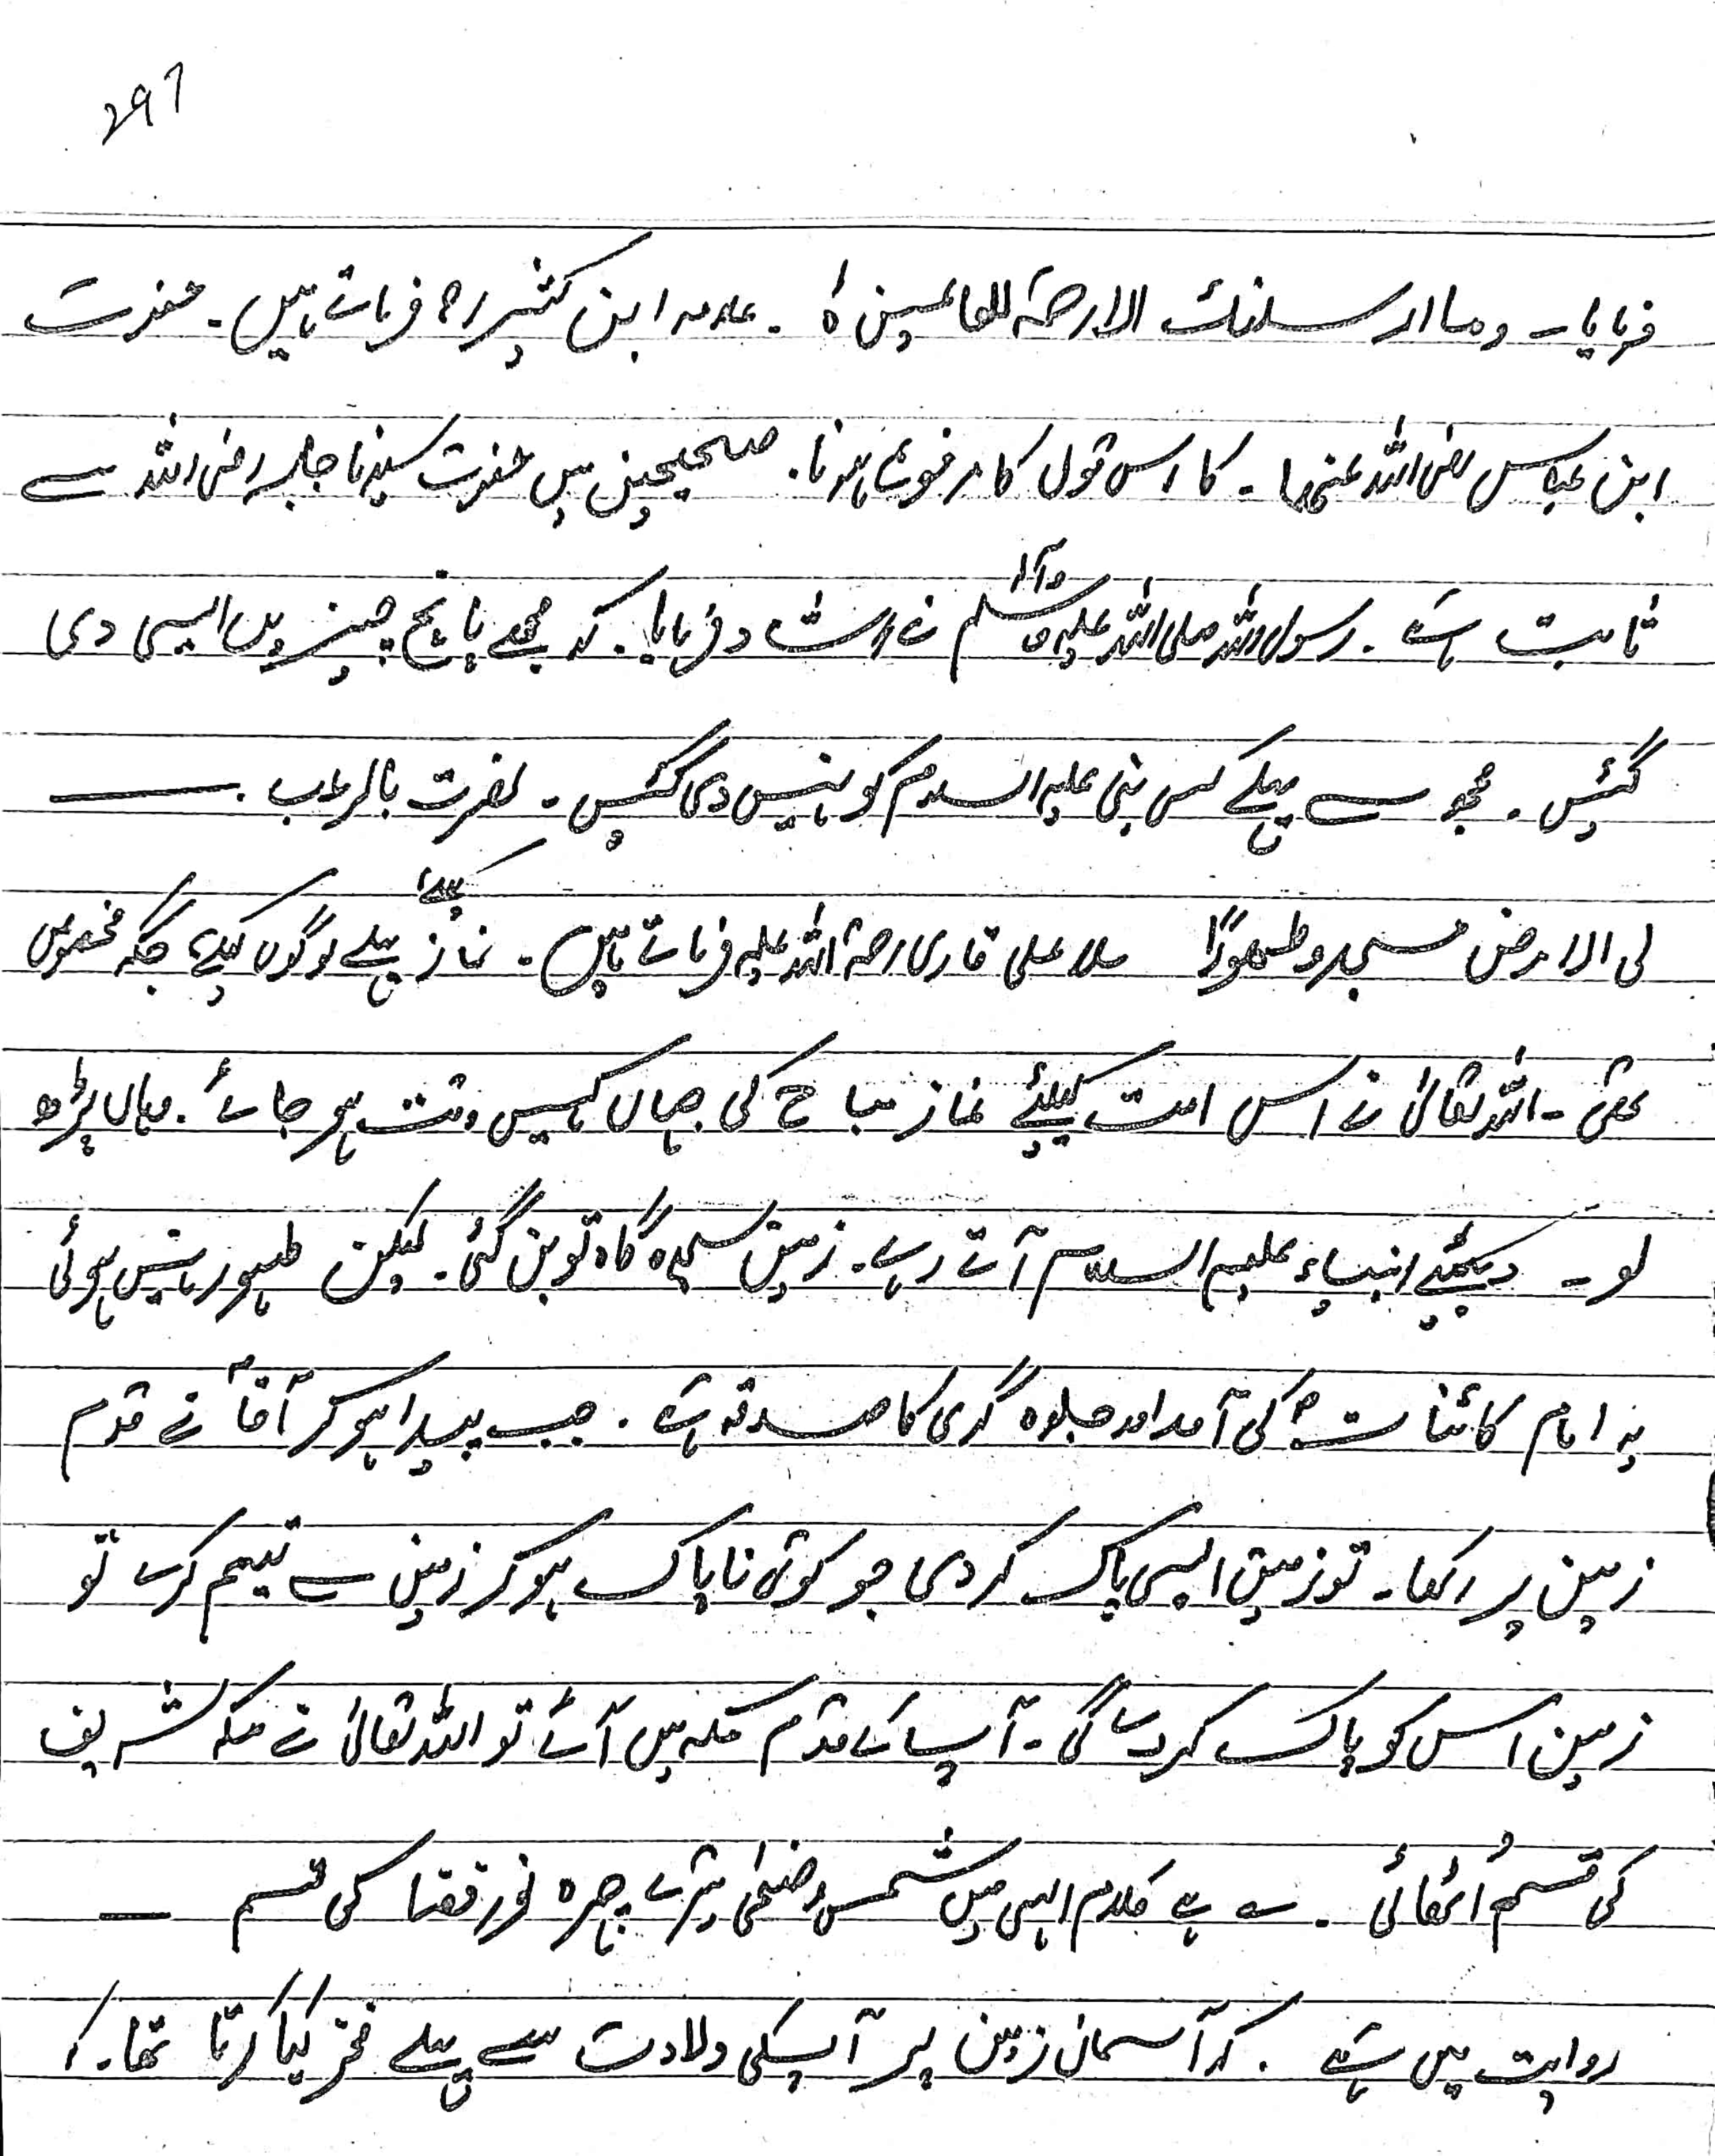 297
فرمایا۔ وما ارسلنک الا رحمة للعالمین ہ ۔ علامہ ابن کثیر رح فرماتے ہیں۔ حضرت
ابن عباس رضی اللہ عنہما۔ کا اس قول کا مرفوع ہونا۔ صحیحین میں حضرت سیدنا جابر رضی اللہ سے
ثابت ہے۔ رسول اللہ صلی اللہ علیہ وآلہ وسلم نے ارشاد فرمایا۔ کہ مجھے پانچ چیزیں ایسی دی
گئیں۔ مجھ سے پہلے کسی نبی علیہ السلام کو نہیں دی گئیں۔ نصرت بالرعب ۔ ——
لی الارض مسجد وطھورًا ملا علی قاری رحمۃ اللہ علیہ فرماتے ہیں۔ نماز پہلے لوگوں کیلئے جگہ مخصوص
تھی۔ اللہ تعالیٰ نے اس امت کیلئے نماز مباح کی جہاں کہیں وقت ہو جائے۔ وہاں پڑھ
لو۔ دیکھئے انبیاء علیہم السلام آتے رہے۔ زمین سجدہ گاہ تو بن گئی۔ لیکن طہور نہیں ہوئی
یہ امام کائنات ؐ کی آمد اور جلوہ گری کا صدقہ ہے۔ جب پیدا ہو کر آقا ؐ نے قدم
زمین پر رکھا۔ تو زمین ایسی پاک کر دی جو کوئی ناپاک ہو کر زمین سے تیمم کرے تو
زمین اس کو پاک کر دے گی۔ آپ کے قدم مکہ میں آئے تو اللہ تعالیٰ نے مکہ شریف
کی قسم اُٹھائی۔ ے ہے کلام الہی میں شمس وضحٰی تیرے چہرہ نور فضا کی قسم —
روایت میں ہے۔ کہ آسمان زمین پر آپکی ولادت سے پہلے فخر کیا کرتا تھا۔ کہ